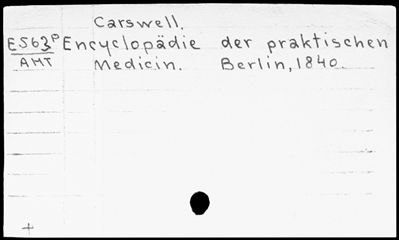 Carswell.
E563P Encyclopädie der praktischen
AMT Medicin. Berlin, 1840.